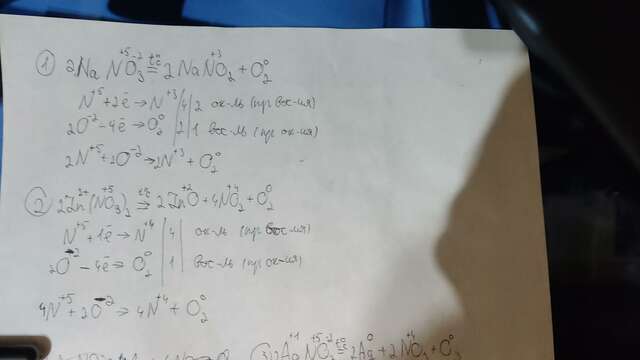 1) 2Na N⁺⁵O₃⁻² =t°c 2NaN⁺³O₂ + O₂⁰
N⁺⁵ + 2ē → N⁺³ |4| 2 ок-ль (пр вос-ия)
2O⁻² - 4ē → O₂⁰ |2| 1 вос-ль (пр ок-ия)
2N⁺⁵ + 2O⁻² → 2N⁺³ + O₂⁰
2) 2Zn²⁺(N⁺⁵O₃)₂ =t°c 2Zn⁺²O + 4N⁺⁴O₂ + O₂⁰
N⁺⁵ + 1ē → N⁺⁴ | 4 | ок-ль (пр вос-ия)
2O⁻² - 4ē → O₂⁰ | 1 | вос-ль (пр ок-ия)
4N⁺⁵ + 2O⁻² → 4N⁺⁴ + O₂⁰
3) 2Ag⁺¹N⁺⁵O₃⁻² =t°c 2Ag⁰ + 2N⁺⁴O₂ + O₂⁰